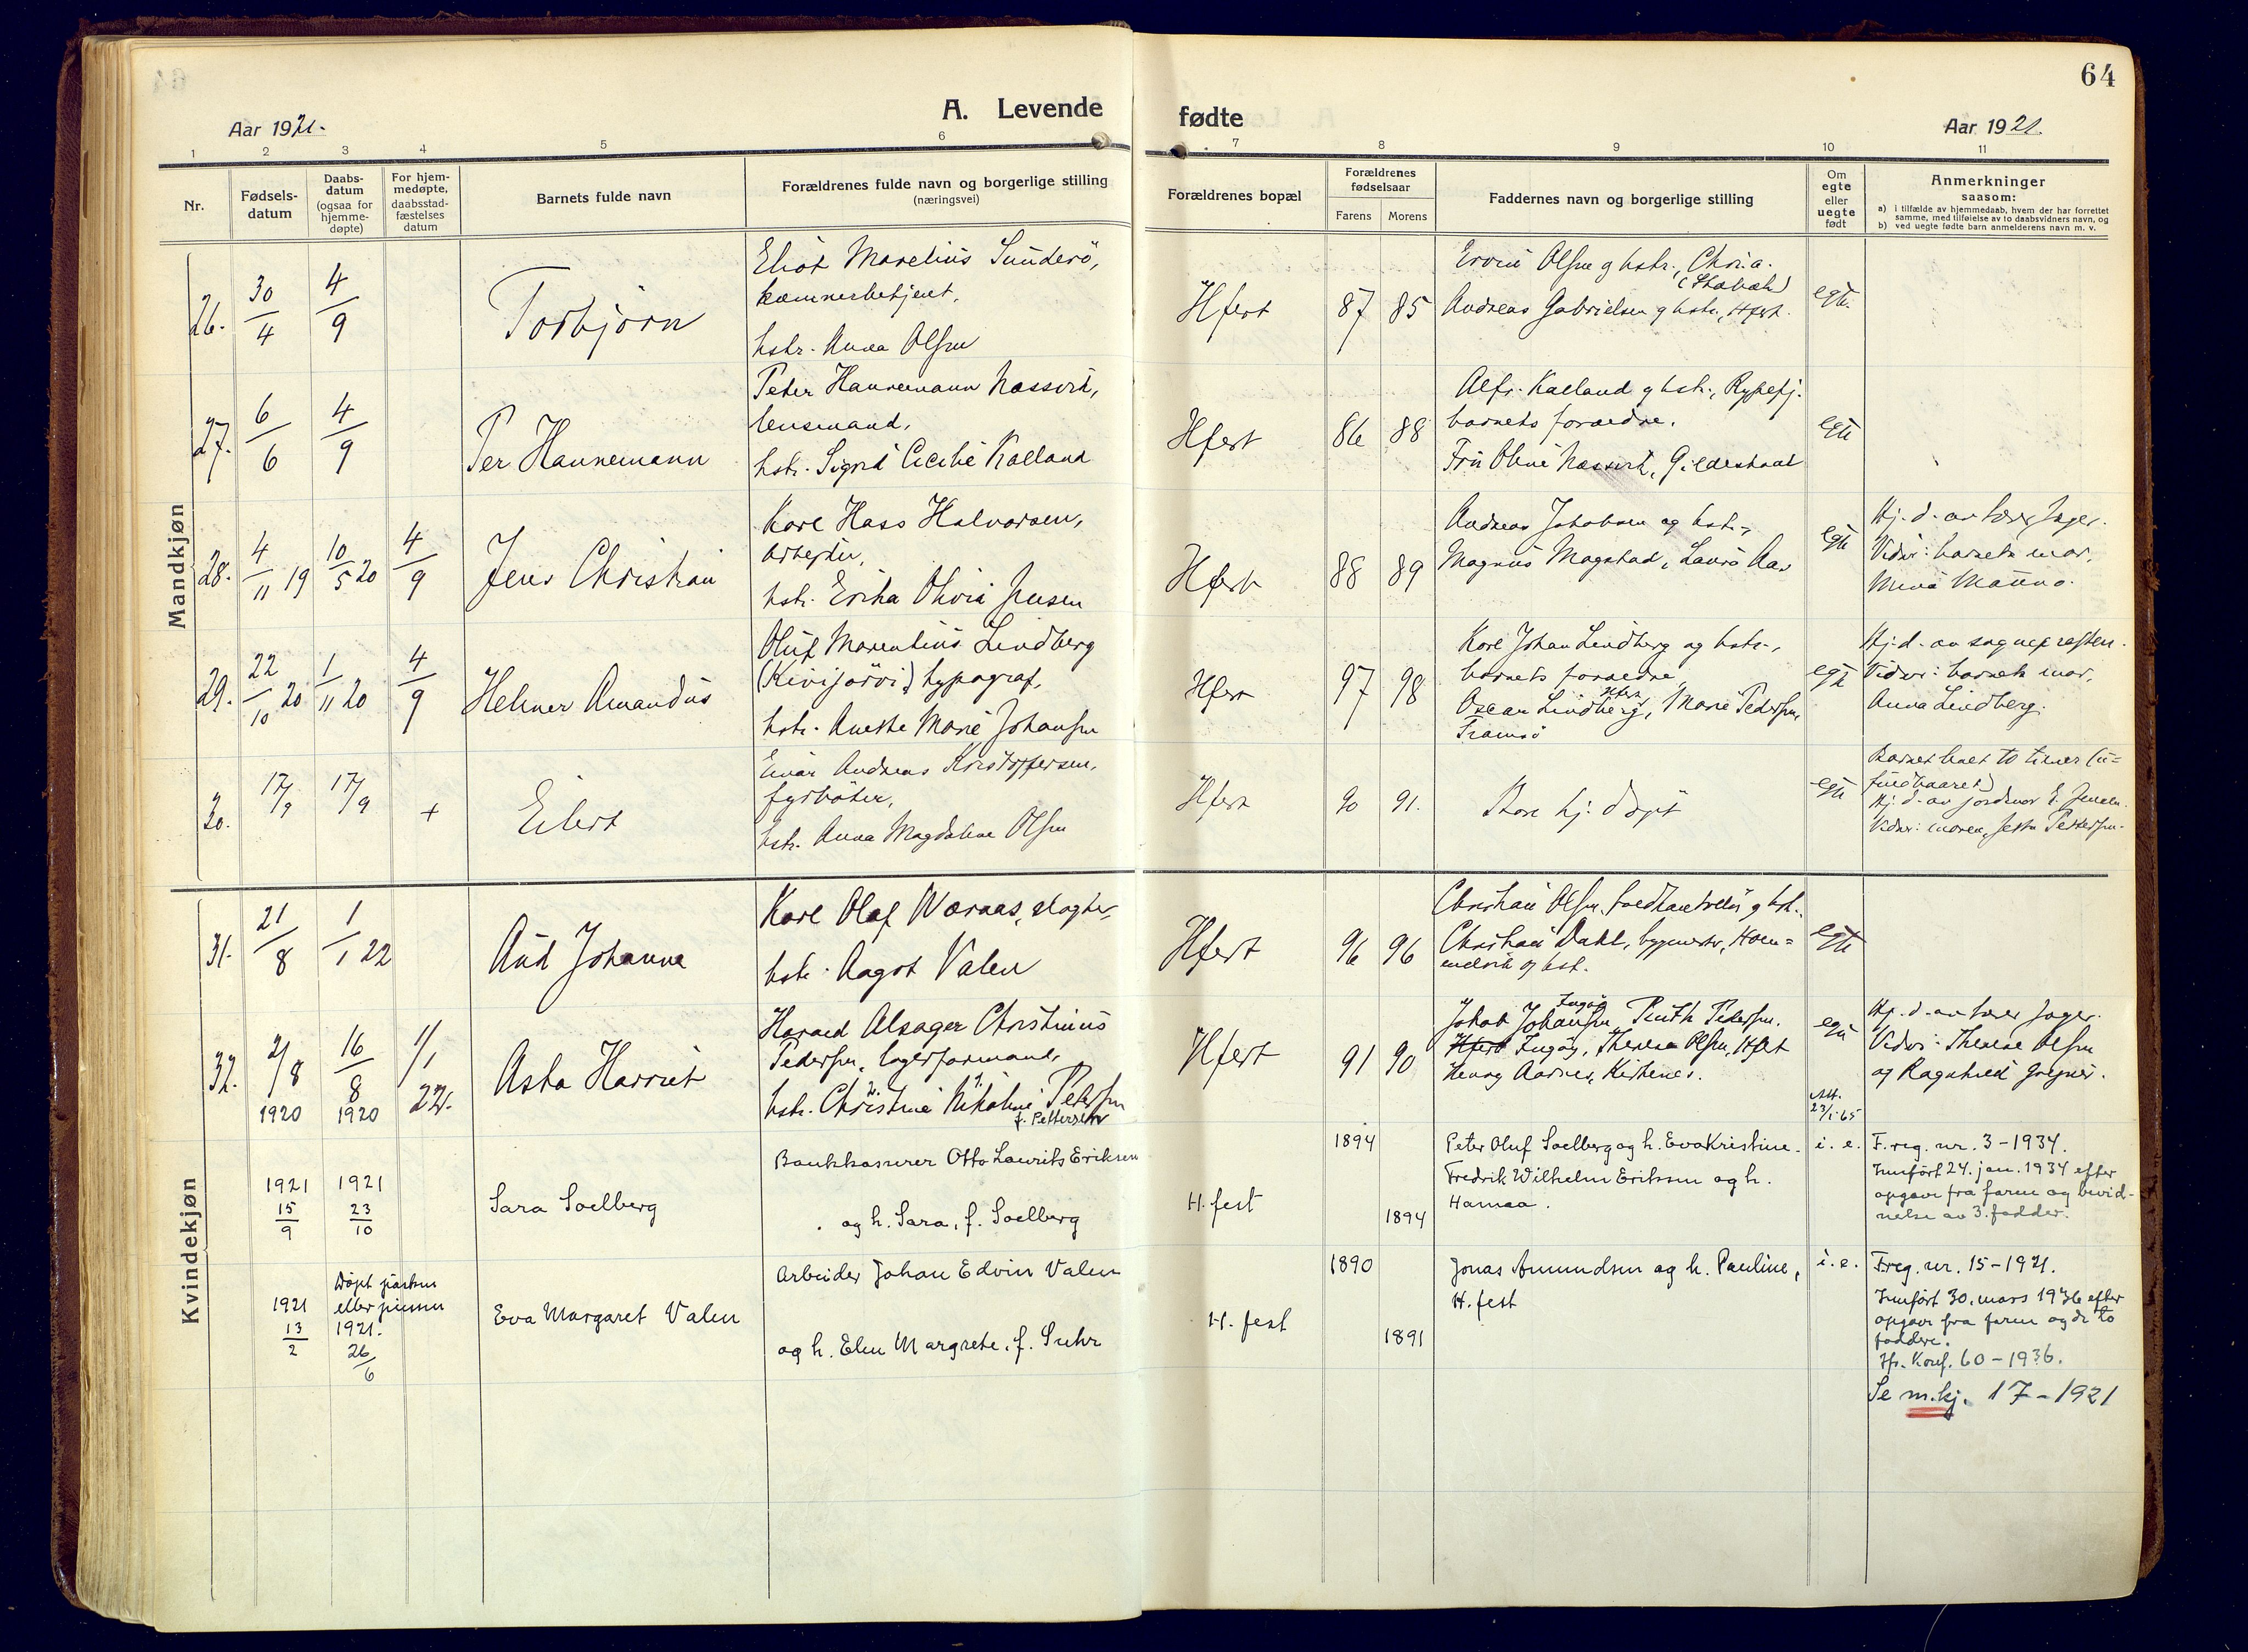 64
A. Levende fødte
Aar 1921.
Aar 1921.
1 2 3 4 5 6 7 8 9 10 11
Nr.
Fødsels-
datum
Daabs-
datum
(ogsaa for
hjemme-
døpte)
For hjem-
medøpte,
daabsstad-
fæstelses
datum
Barnets fulde navn
Forældrenes fulde navn og borgerlige stilling
(næringsvei)
Forældrenes bopæl
Forældrenes
fødselsaar
Farens Morens
Faddernes navn og borgerlige stilling
Om
egte
eller
uegte
født
Anmerkninger
saasom:
a) i tilfælde av hjemmedaab, hvem der har forrettet
samme, med tilføielse av to daabsvidners navn, og
b) ved uegte fødte barn anmelderens navn m. v.
Mandkjøn
26. 30/4 4/9
Torbjörn
Eliot Marelius Sunderö,
kæmnerbetjent,
hstr. Anna Olsen
Hfest 87 85
Olsen g hstr.,
Andreas Gabrielsen g hstr., Hfest.
egte.
27. 6/6 4/9
Per Hannemann
Peter Hannemann Næssvik,
lensmand,
hstr. Sigrid Cecilie Kalland
Hfest 86 88
Alfr. Kalland g hstr., Rypefj.
barnets forædre.
Fru Oline Næssvik, Gildeskaal
egte
28. 4/11 19 10/5 20 4/9
Jens Christian
Karl Hass Halvorsen,
arbejder,
hstr. Erika Olivia Jensen
Hfest 88 89
Andreas Jakobsen og hstr.,
Magnus Magstad, Laura Aas
egte
Hj. d. av lærer Jager.
Vidner: barnets mor,
Mina Mauno.
29. 22/10 20 1/11 20 4/9
Helmer Amandus
Oluf Marentius Lindberg
(Kivijärvi) typograf,
hstr. Anette Marie Johansen
Hfest 97 98
Karl Johan Lindberg og hstr.,
barnets foræedre,
Oscar Lindberg, Hfest, Marie Pedersen,
Tromsö
egte
Hj. d. av sognepresten.
Vidner: barnets mor,
Anna Lindberg.
30. 17/9 17/9 +
Eilert
Einar Andreas Kristoffersen,
fyrböter,
hstr. Anna Magdalene Olsen
Hfest 90 91.
Kun hj. døpt
egte
Barnet levet to timer (u=
fuldbaaret)
Hj. d. av jordmor E. Jensen.
Vidner: moren, Pettersen.
Kvindekjøn
31. 21/8 1/1 22
Aud Johanne
Karl Olaf Woraas, slagter,
hstr. Aagot Valen
Hfest 96 96
Christian Olsen, g hstr.,
Christian Dahl, bygmester,
og hst.
egte
32. 2/8 1920 16/8 1920 1/1 22.
Asta Harriet
Harald Alsager Christinius
Pedersen, lagerformand,
hstr. Christine Nikoline Petersen
f. Pettersen
Hfest 91 90
Jakob Johansen, Ingøy, Ruth Pedersen,
Hfest Ingøy, Therese Olsen, Hfest
Henry Aarnes, Kirkenes.
egte
Att.
23/1-65
Hj. d. av lærer Jager.
Vidner: Therese Olsen
og Ragnhild Gregner.
1921 15/9 1921 23/10
Sara Soelberg
Bankkasserer Otto Laurits Eriksen
og h. Sara, f. Soelberg
H.fest 1894 1894
Peter Oluf Soelberg og h. Eva Kristine.
Fredrik Wilhelm Eriksen og h.
Hanna.
i. e.
F. reg. nr. 3 – 1934.
Innført 24. jan. 1934 efter
opgave fra faren og bevid-
nelse av 3. fadder.
1921 13/2
Døpt påsken
eller pinsen
1921.
26/6
Eva Margaret Valen
Arbeider Johan Edvin Valen
og h. Elen Margrete, f. Suhr
H. fest 1890 1891
Jonas Amundsen og h. Pauline,
H. fest
i. e.
F.reg. nr. 15 – 1921.
Innført 30. mars 1936 efter
opgave fra faren og de to
faddere.
Jfr. Konf. 60 – 1936.
Se m.kj. 17 – 1921